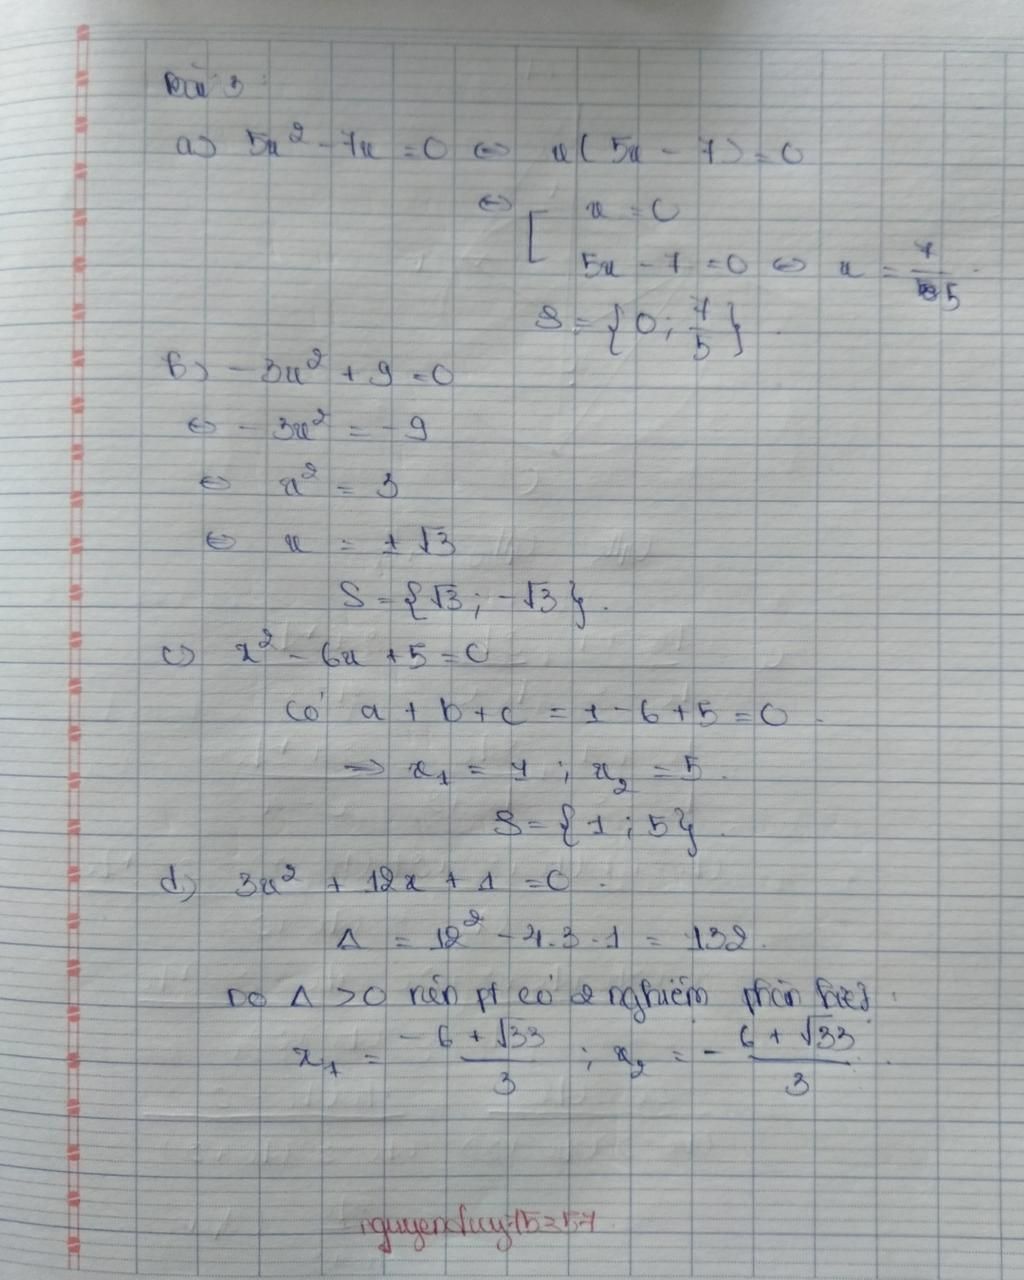 Bài 3:
a) 5x² - 7x = 0 ⇔ x(5x - 7) = 0
⇔ [ x = 0
5x - 7 = 0 ⇔ x = 7/5.
S = {0; 7/5}.
b) -3x² + 9 = 0
⇔ -3x² = -9
⇔ x² = 3
⇔ x = ±√3
S = {√3; -√3}.
c) x² - 6x + 5 = 0
Có a + b + c = 1 - 6 + 5 = 0.
⇒ x₁ = 1; x₂ = 5.
S = {1; 5}.
d) 3x² + 12x + 1 = 0.
Δ = 12² - 4.3.1 = 132.
Do Δ > 0 nên pt có 2 nghiệm phân biệt:
x₁ = (-6 + √33)/3; x₂ = -(6 + √33)/3.